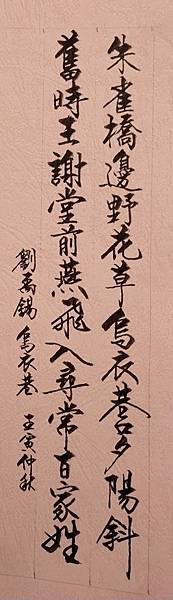 朱雀橋邊野花草烏衣巷口夕陽斜
舊時王謝堂前燕飛入尋常百家姓
劉禹錫烏衣巷 壬寅仲秋